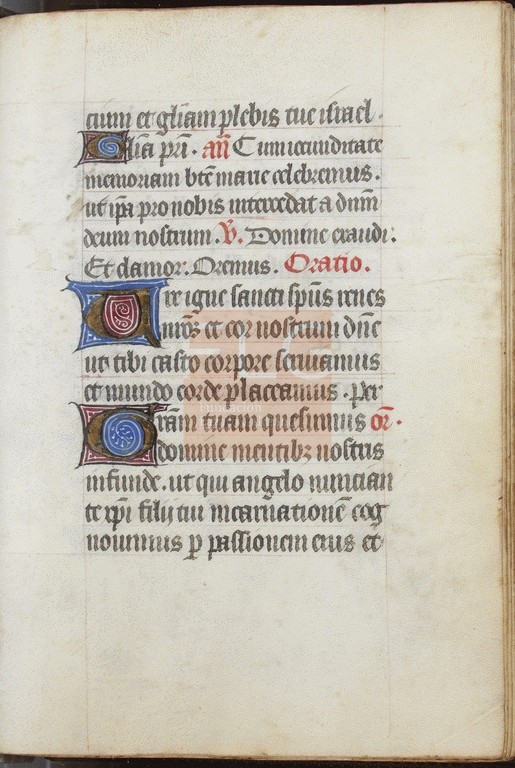 cium et gl̄iam plebis tue israel.
Gl̄ia pr̄i. an̄ Cum iocunditate
memoriam bt̄e marie celebremus.
ut ip̄a pro nobis intercedat a dn̄m
deum nostrum. V̄. Domine exaudi.
Et clamor. Oremus. Oratio.
Ure igne sancti sp̄us renes
nr̄os et cor nostrum dn̄e
ut tibi casto corpore seruiamus
et mundo corde placeamus. Per
Gratiam tuam quesumus or̄.
domine mentibꝫ nostris
infunde. ut qui angelo nuncian
te xp̄i filij tui incarnationē cog
nouimus ꝑ passionem eius et
fundación